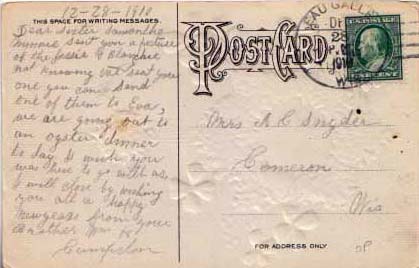 12-28-1910
THIS SPACE FOR WRITING MESSAGES.
Dear Sister Samantha
Minnie sent you a picture
of the Jessie & Blanchie
not knowing we sent you
one you can send
one of them to Eva,
we are going out to
an oyster dinner
to day I wish you
was here to go with us
I will close by wishing
you all a happy
Newyears from your
brother Wm
POST CARD
EAU GALL
DE
28
1910
WIS
Mrs A C Snyder
Cameron
Wis
FOR ADDRESS ONLY